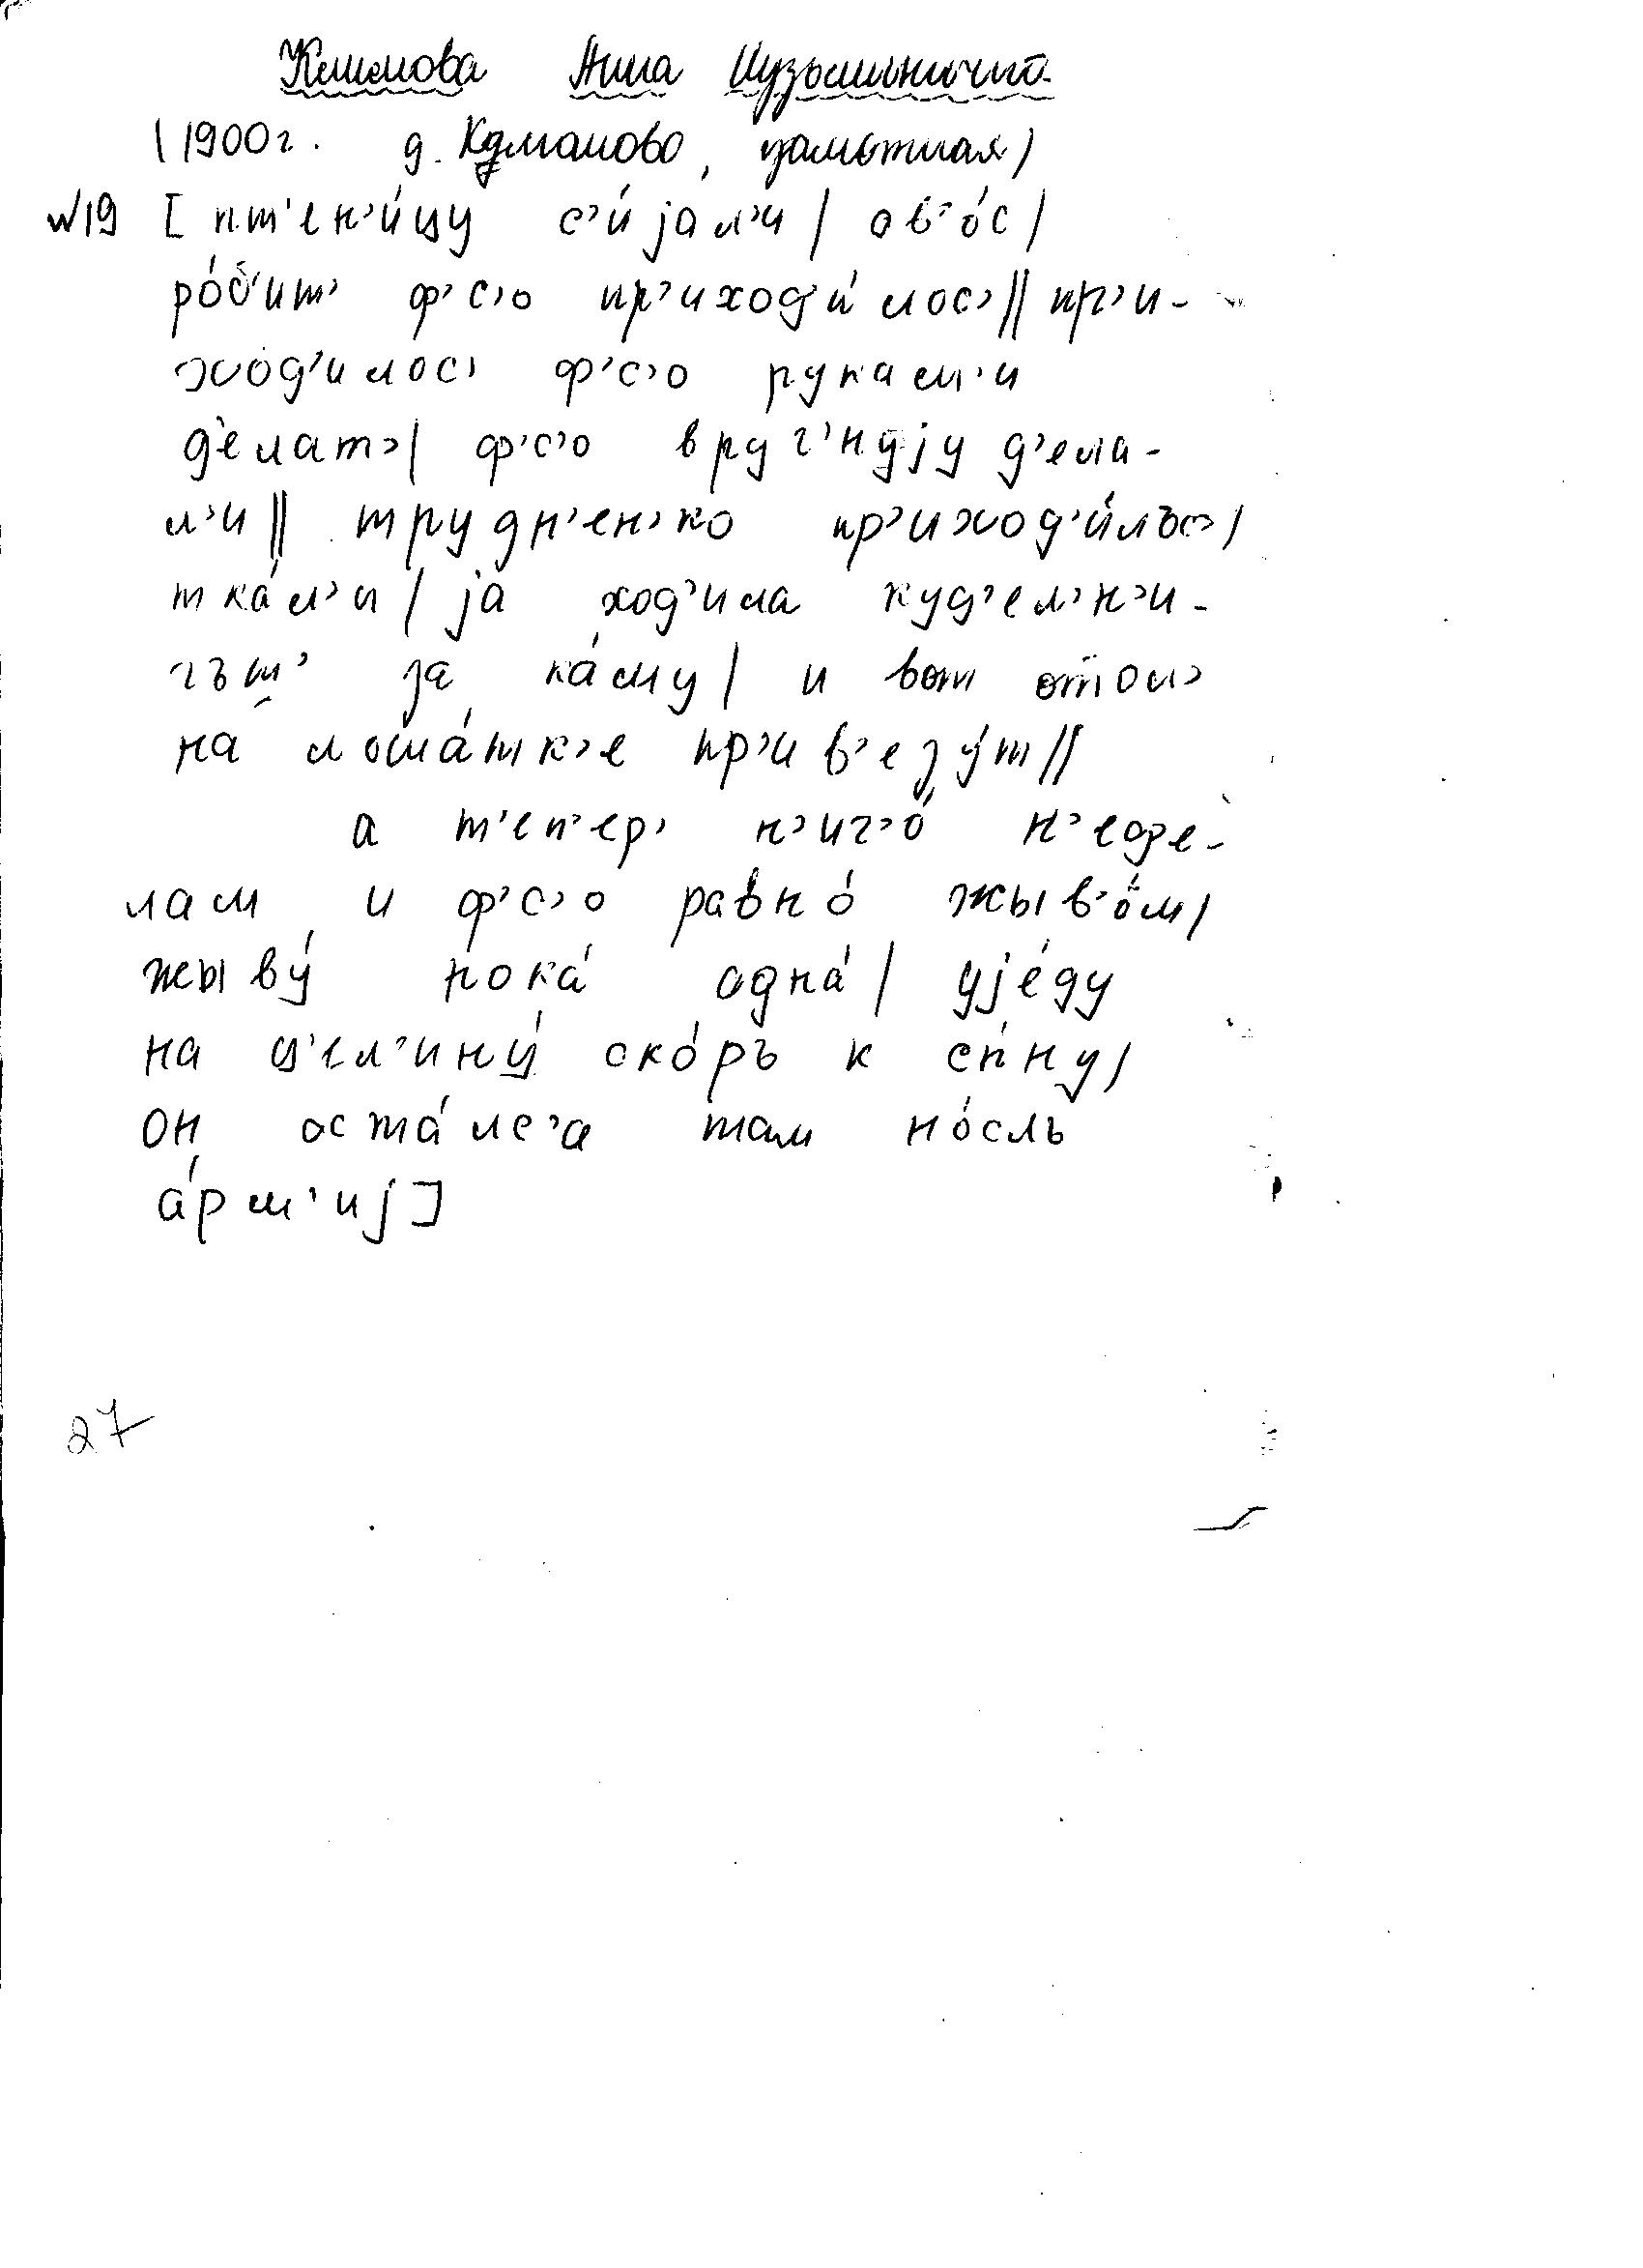 Климова Анна Кузьминична
(1900г. д. Кузманово, грамотная)
№19 [ пт'ен'и́цу с'и́јал'и / ов'о́с /
ро́б'ит' ф'с'о пр'иход'и́лос' // пр'и-
ход'илос' ф'с'о рукам'и
д'елат' / ф'с'о вруч'ну́ју д'ела-
л'и // трудн'ен'ко пр'иход'и́лъс' /
тка́л'и / ја ход'ила куд'ел'н'и-
чът' за ка́му / и вот
на лоша́тк'е пр'ив'езу́т //
а т'еп'ер' н'ич'о́ н'еде-
лам и ф'с'о равно́ жыв'о́м /
жыву́ пока́ одна́ / ује́ду
на ц'ел'ину́ ско́ръ к сы́ну /
он оста́лс'а там по́сль
а́рм'иј ]
27